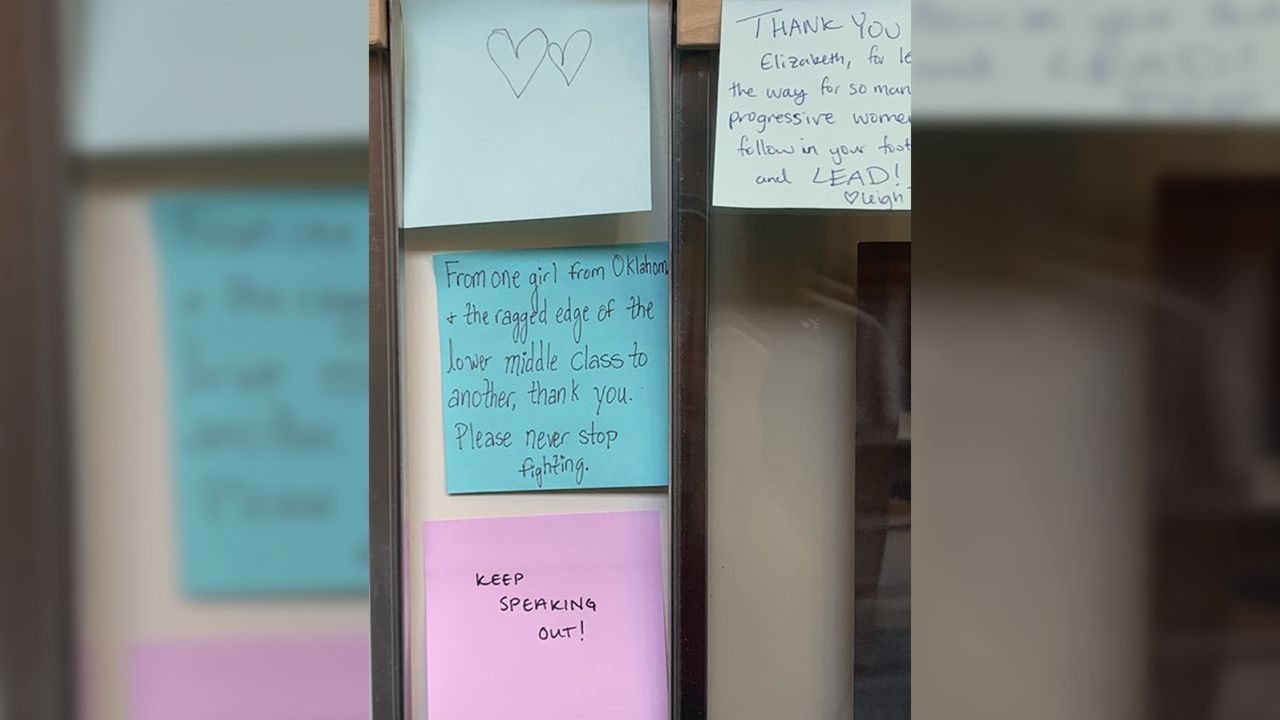 From one girl from Oklahom
+ the ragged edge of the
lower middle class to
another, thank you.
Please never stop
fighting.
KEEP
SPEAKING
OUT!
THANK YOU
Elizabeth, for le
the way for so man
progressive wome
follow in your foot
and LEAD!
♡Leigh